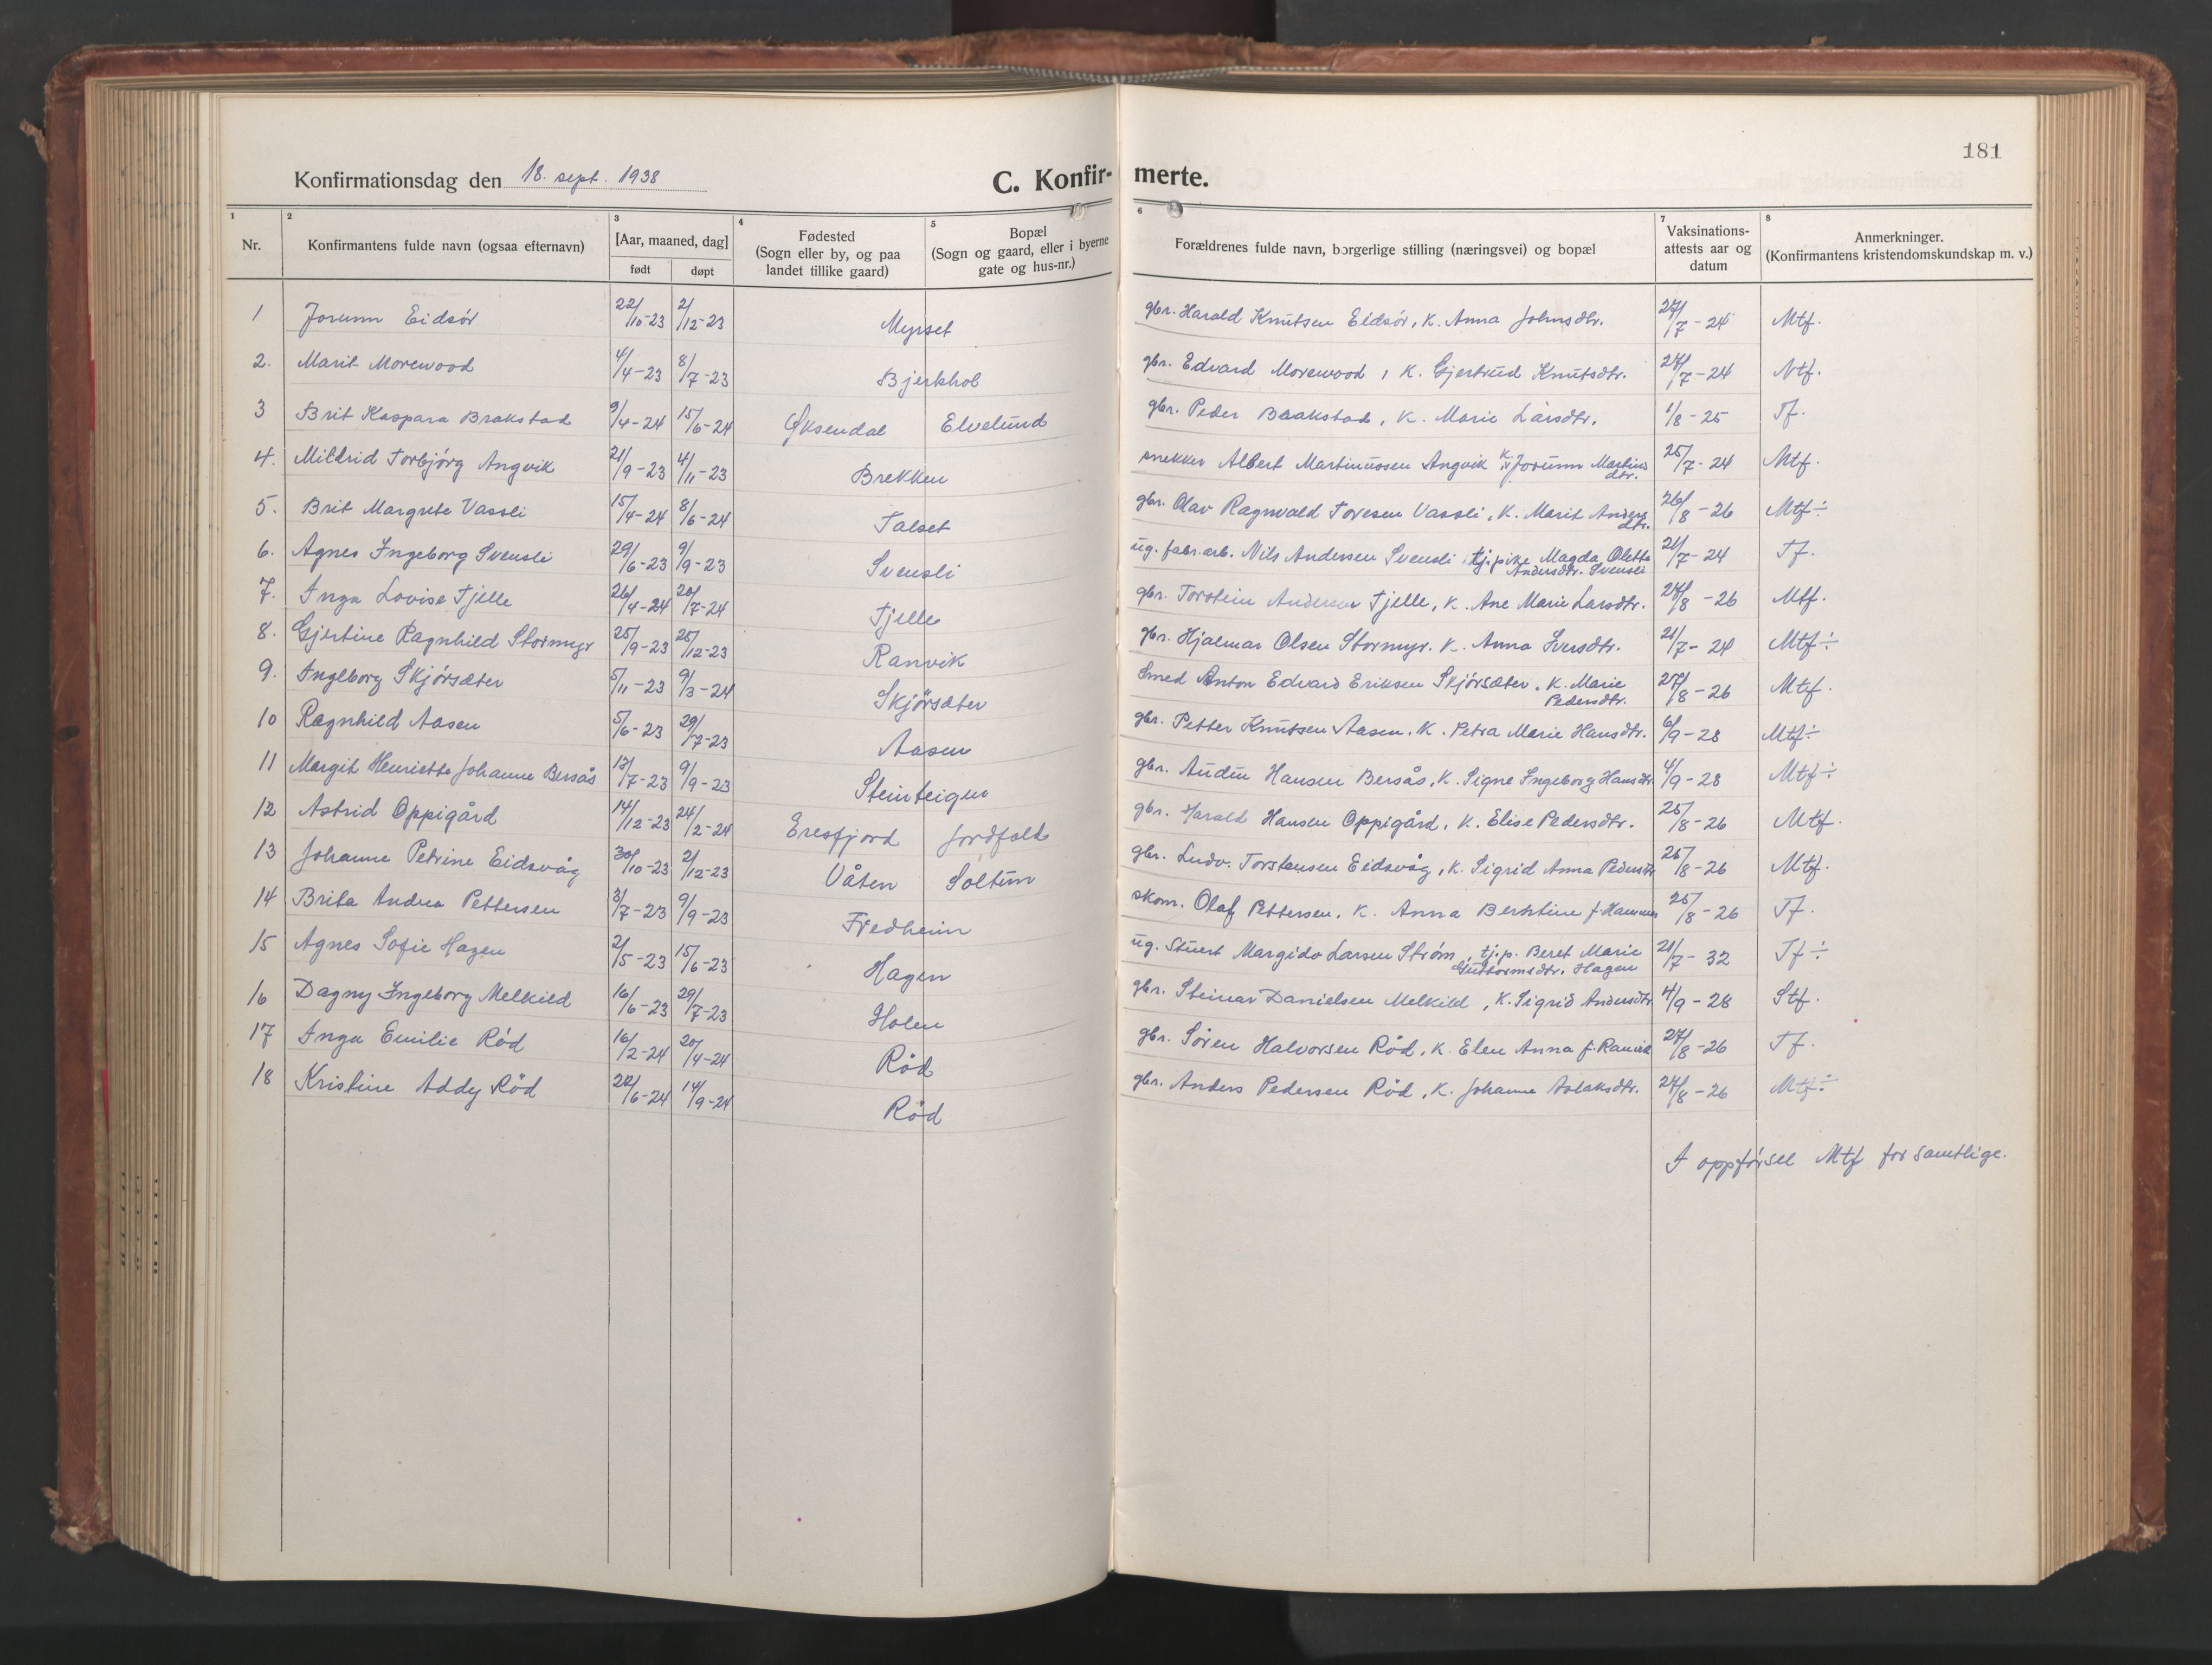 181
Konfirmationsdag den 18. sept. 1938 C. Konfir- merte.
1 2 3 4 5 6 7 8
Nr. Konfirmantens fulde navn (ogsaa efternavn) [Aar, maaned, dag] født døpt Fødested (Sogn eller by, og paa landet tillike gaard) Bopæl (Sogn og gaard, eller i byerne gate og hus-nr.) Forældrenes fulde navn, borgerlige stilling (næringsvei) og bopæl Vaksinations-attests aar og datum Anmerkninger. (Konfirmantens kristendomskundskap m. v.)
1 Jorunn Eidsör 22/10-23 2/12-23 Myrset gbr. Harald Knutsen Eidsör, K. Anna Johnsdtr. 27/7-24 Mtf.
2. Marit Morewood 4/4-23 8/7-23 Bjerkhol gbr. Edvard Morewood, K. Gjertrud Knutsdtr. /7-24 Ntf.
3 Brit Kaspara Brakstad 9/4-24 15/6-24 Øksendal Elvelund gbr. Peder Brakstad, K. Marie Larsdtr. 1/8-25 Tf.
4. Mildrid Torbjörg Angvik 21/9-23 4/11-23 Brekken snekker Albert Martinussen Angvik K. Jorunn Martins dtr. 25/7-24 Mtf.
5. Brit Margrete Vassli 15/4-24 8/6-24 Talset gbr. Olav Ragnvald Toresen Vassli, K. Marit Anders dtr. 26/8-26 Mtf÷
6. Agnes Ingeborg Svensli 29/6-23 9/9-23 Svensli ug. fabr.arb. Nils Andersen Svensli, tj.pike Magda Olette Andersdtr. Svensli 21/7-24 Tf.
7. Inga Lovise Tjelle 26/4-24 20/7-24 Tjelle gbr. Torstein Andersen Tjelle, K. Ane Marie Larsdtr. /8-26 Mtf.
8. Gjertine Ragnhild Stormyr 25/9-23 25/12-23 Ranvik gbr. Hjalmar Olsen Stormyr. K. Anna Iversdtr. 21/7-24 Mtf÷
9. Ingeborg Skjörsæter 5/11-23 9/3-24 Skjörsæter Smed Anton Edvard Eriksen Skjörsæter, K. Marie Pedersdtr. 27/8-26 Mtf.
10 Ragnhild Aasen 5/6-23 29/7-23 Aasen gbr. Petter Knutsen Aasen. K. Petra Marie Hansdtr. 6/9-28 Mtf÷
11 Margit Henriette Johanne Bersås /7-23 9/9-23 Steinteigen gbr. Audun Hansen Bersås, K. Signe Ingeborg Hansdtr. 4/9-28 Mtf÷
12 Astrid Oppigård 14/12-23 24/2-24 Eresfjord Jordfald gbr. Harald Hansen Oppigård, K. Elise Pedersdtr. 25/8-26 Mtf.
13 Johanne Petrine Eidsvåg 30/10-23 2/12-23 Våten Soltun gbr. Ludv. Torstensen Eidsvåg, K. Sigrid Anna Pedersdtr 25/8-26 Mtf.
14 Brita Andrea Pettersen 3/7-23 9/9-23 Fredheim skom. Olaf Pettersen, K. Anna Berntine f. Hammer 25/8-26 Tf.
15 Agnes Sofie Hagen 2/5-23 15/6-23 Hagen ug. Stuert Margido Larsen Strøm, tj.p. Beret Marie Guttormsdtr. Hagen 21/7-32 Tf÷
16 Dagny Ingeborg Melkild 16/6-23 29/7-23 Holen gbr. Steinar Danielsen Melkild, K. Sigrid Andersdtr. 4/9-28 Stf.
17 Inga Emilie Röd 16/2-24 20/4-24 Röd gbr. Sören Halvorsen Röd, K. Elen Anna f. Ranvik 27/8-26 Tf.
18 Kristine Addy Röd 22/6-24 14/9-24 Röd gbr. Anders Pedersen Röd, K. Johanne Aslaksdtr. 27/8-26 Mtf÷
I oppförsel Mtf for samtlige.